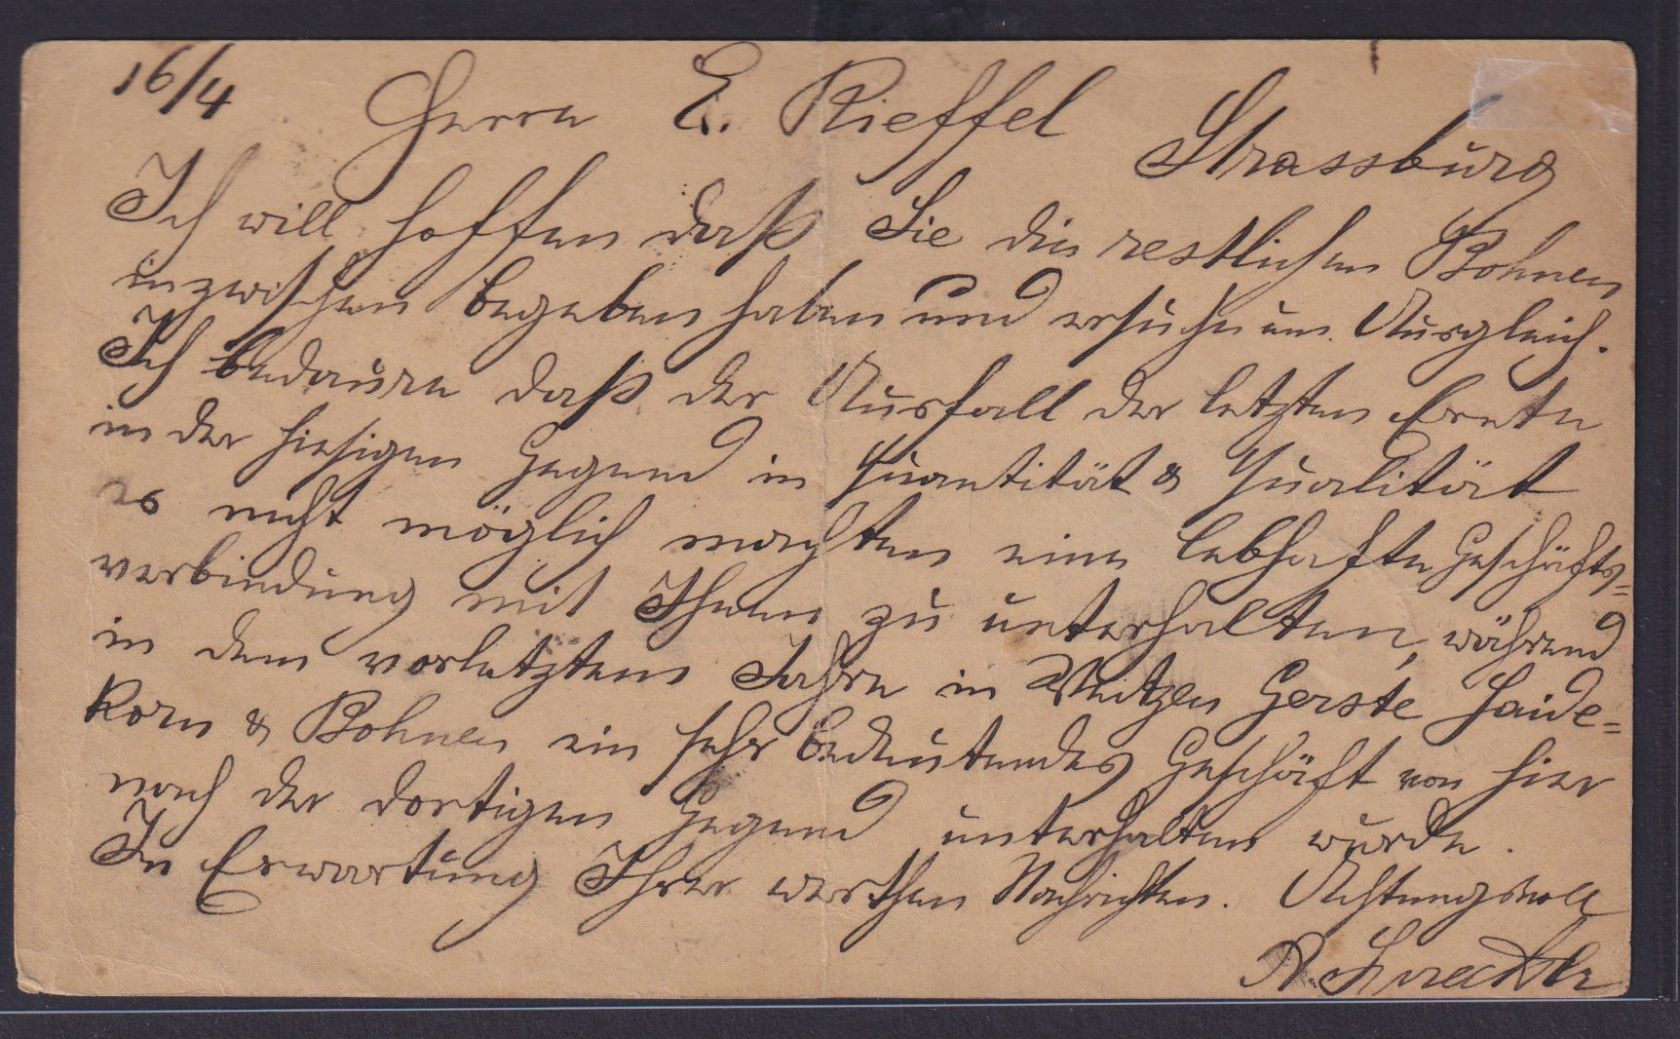 16/4 Herrn E. Rieffel Strassburg
Ich will hoffen daß Sie die restlichen Bohnen
inzwischen begeben haben und ersuche um Ausgleich.
Ich bedaure daß der Ausfall der letzten Ernte
in der hiesigen Gegend in Quantität & Qualität
es nicht möglich machten eine lebhafte Geschäfts=
verbindung mit Ihnen zu unterhalten, während
in dem vorletzten Jahre in Weitzen Gerste Haide=
korn & Bohnen ein sehr bedeutendes Geschäft von hier
nach der dortigen Gegend unterhalten wurde.
In Erwartung Ihrer werthen Nachrichten. Achtungsvoll